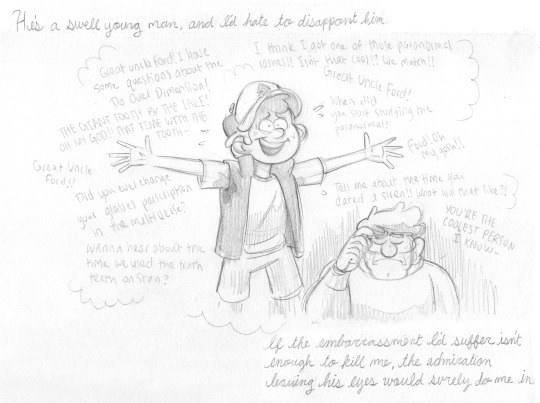 He's a swell young man, and I'd hate to disappoint him.
Great uncle Ford! I have
some questions about the
Do Over Dimension!
THE GIANT TOOTH BY THE LAKE!
OH MY GOD!! THAT TIME WITH THE
TOOTH—
Great Uncle
Ford!!
Did you ever change
your glasses perscription
in the multiverse?
Wanna hear about the
time we used the truth
teeth on Stan?
I think I got one of those paranormal
rashes!! Isn't that cool!? We match!!
Great Uncle Ford!
When did
you start studying the
paranormal?
Ford! Oh
my gosh!!
Tell me about the time you
dated a siren!! What was that like?!
YOU'RE THE
COOLEST PERSON
I KNOW—
If the embarrassment I'd suffer isn't
enough to kill me, the admiration
leaving his eyes would surely do me in